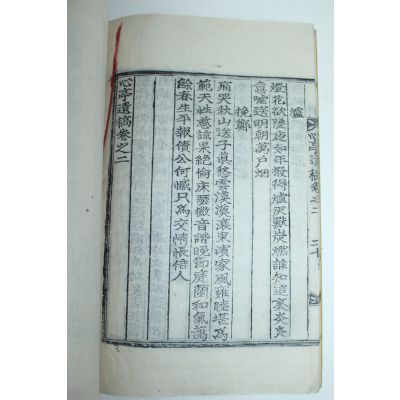 爐
燈花欲墜夜如年撥得爐灰獸炭燃誰知這裏炎炎
意噓送明朝萬戶烟
挽鄭
痛哭秋山送子眞愁雲漠漠瀼東濱家風雍睦堪爲
範天性慈諒果絶倫床琴微音諧晚節庭蘭和氣萬
餘春生平報債公何憾只爲交情悵倍人
心亭遺稿卷之二
心亭遺稿卷之二 二十